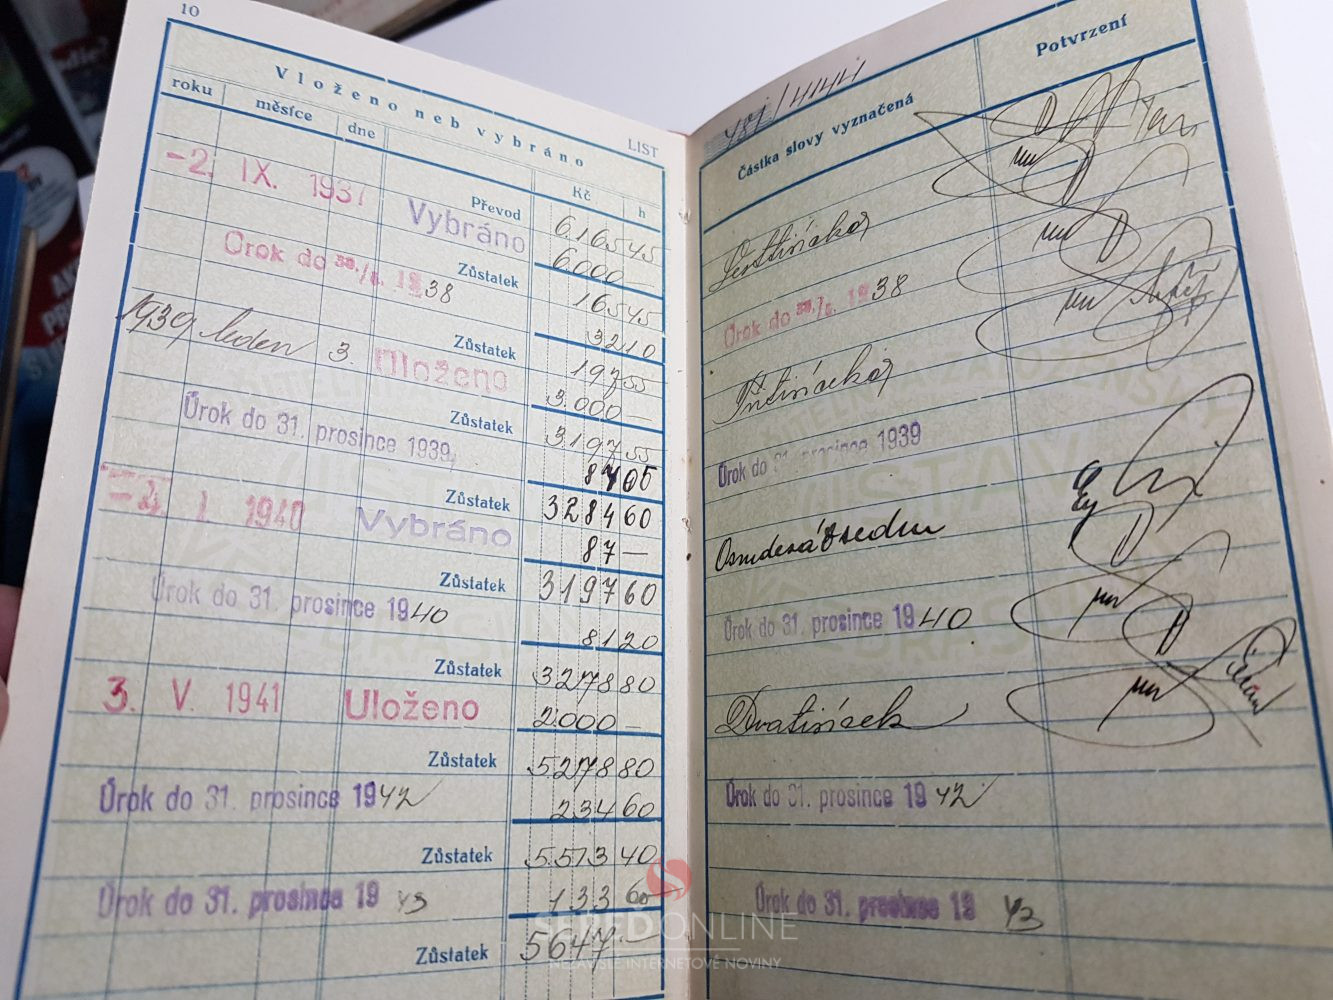 10
Vloženo neb vybráno
LIST
roku měsíce dne
Kč h
Převod 6.165 45
-2. IX. 1937 Vybráno 6.000 —
Zůstatek 165 45
Úrok do 30./6. 1938 32 10
Zůstatek 197 55
1939 leden 3. Uloženo 3.000 —
Zůstatek 3.197 55
Úrok do 31. prosince 1939 87 05
Zůstatek 3284 60
-2. I. 1940 Vybráno 87 —
Zůstatek 3197 60
Úrok do 31. prosince 1940 81 20
Zůstatek 3278 80
3. V. 1941 Uloženo 2.000 —
Zůstatek 5.278 80
Úrok do 31. prosince 1942 234 60
Zůstatek 5.513 40
Úrok do 31. prosince 1943 133 60
Zůstatek 5647 —
Částka slovy vyznačená
Potvrzení
Šesttisíc kor
Úrok do 30./6. 1938
Třitisíce kor
Úrok do 31. prosince 1939
Osmdesátsedm
Úrok do 31. prosince 1940
Dvatisíce k
Úrok do 31. prosince 1942
Úrok do 31. prosince 1943
SEREĎONLINE
NEZÁVISLÉ INTERNETOVÉ NOVINY